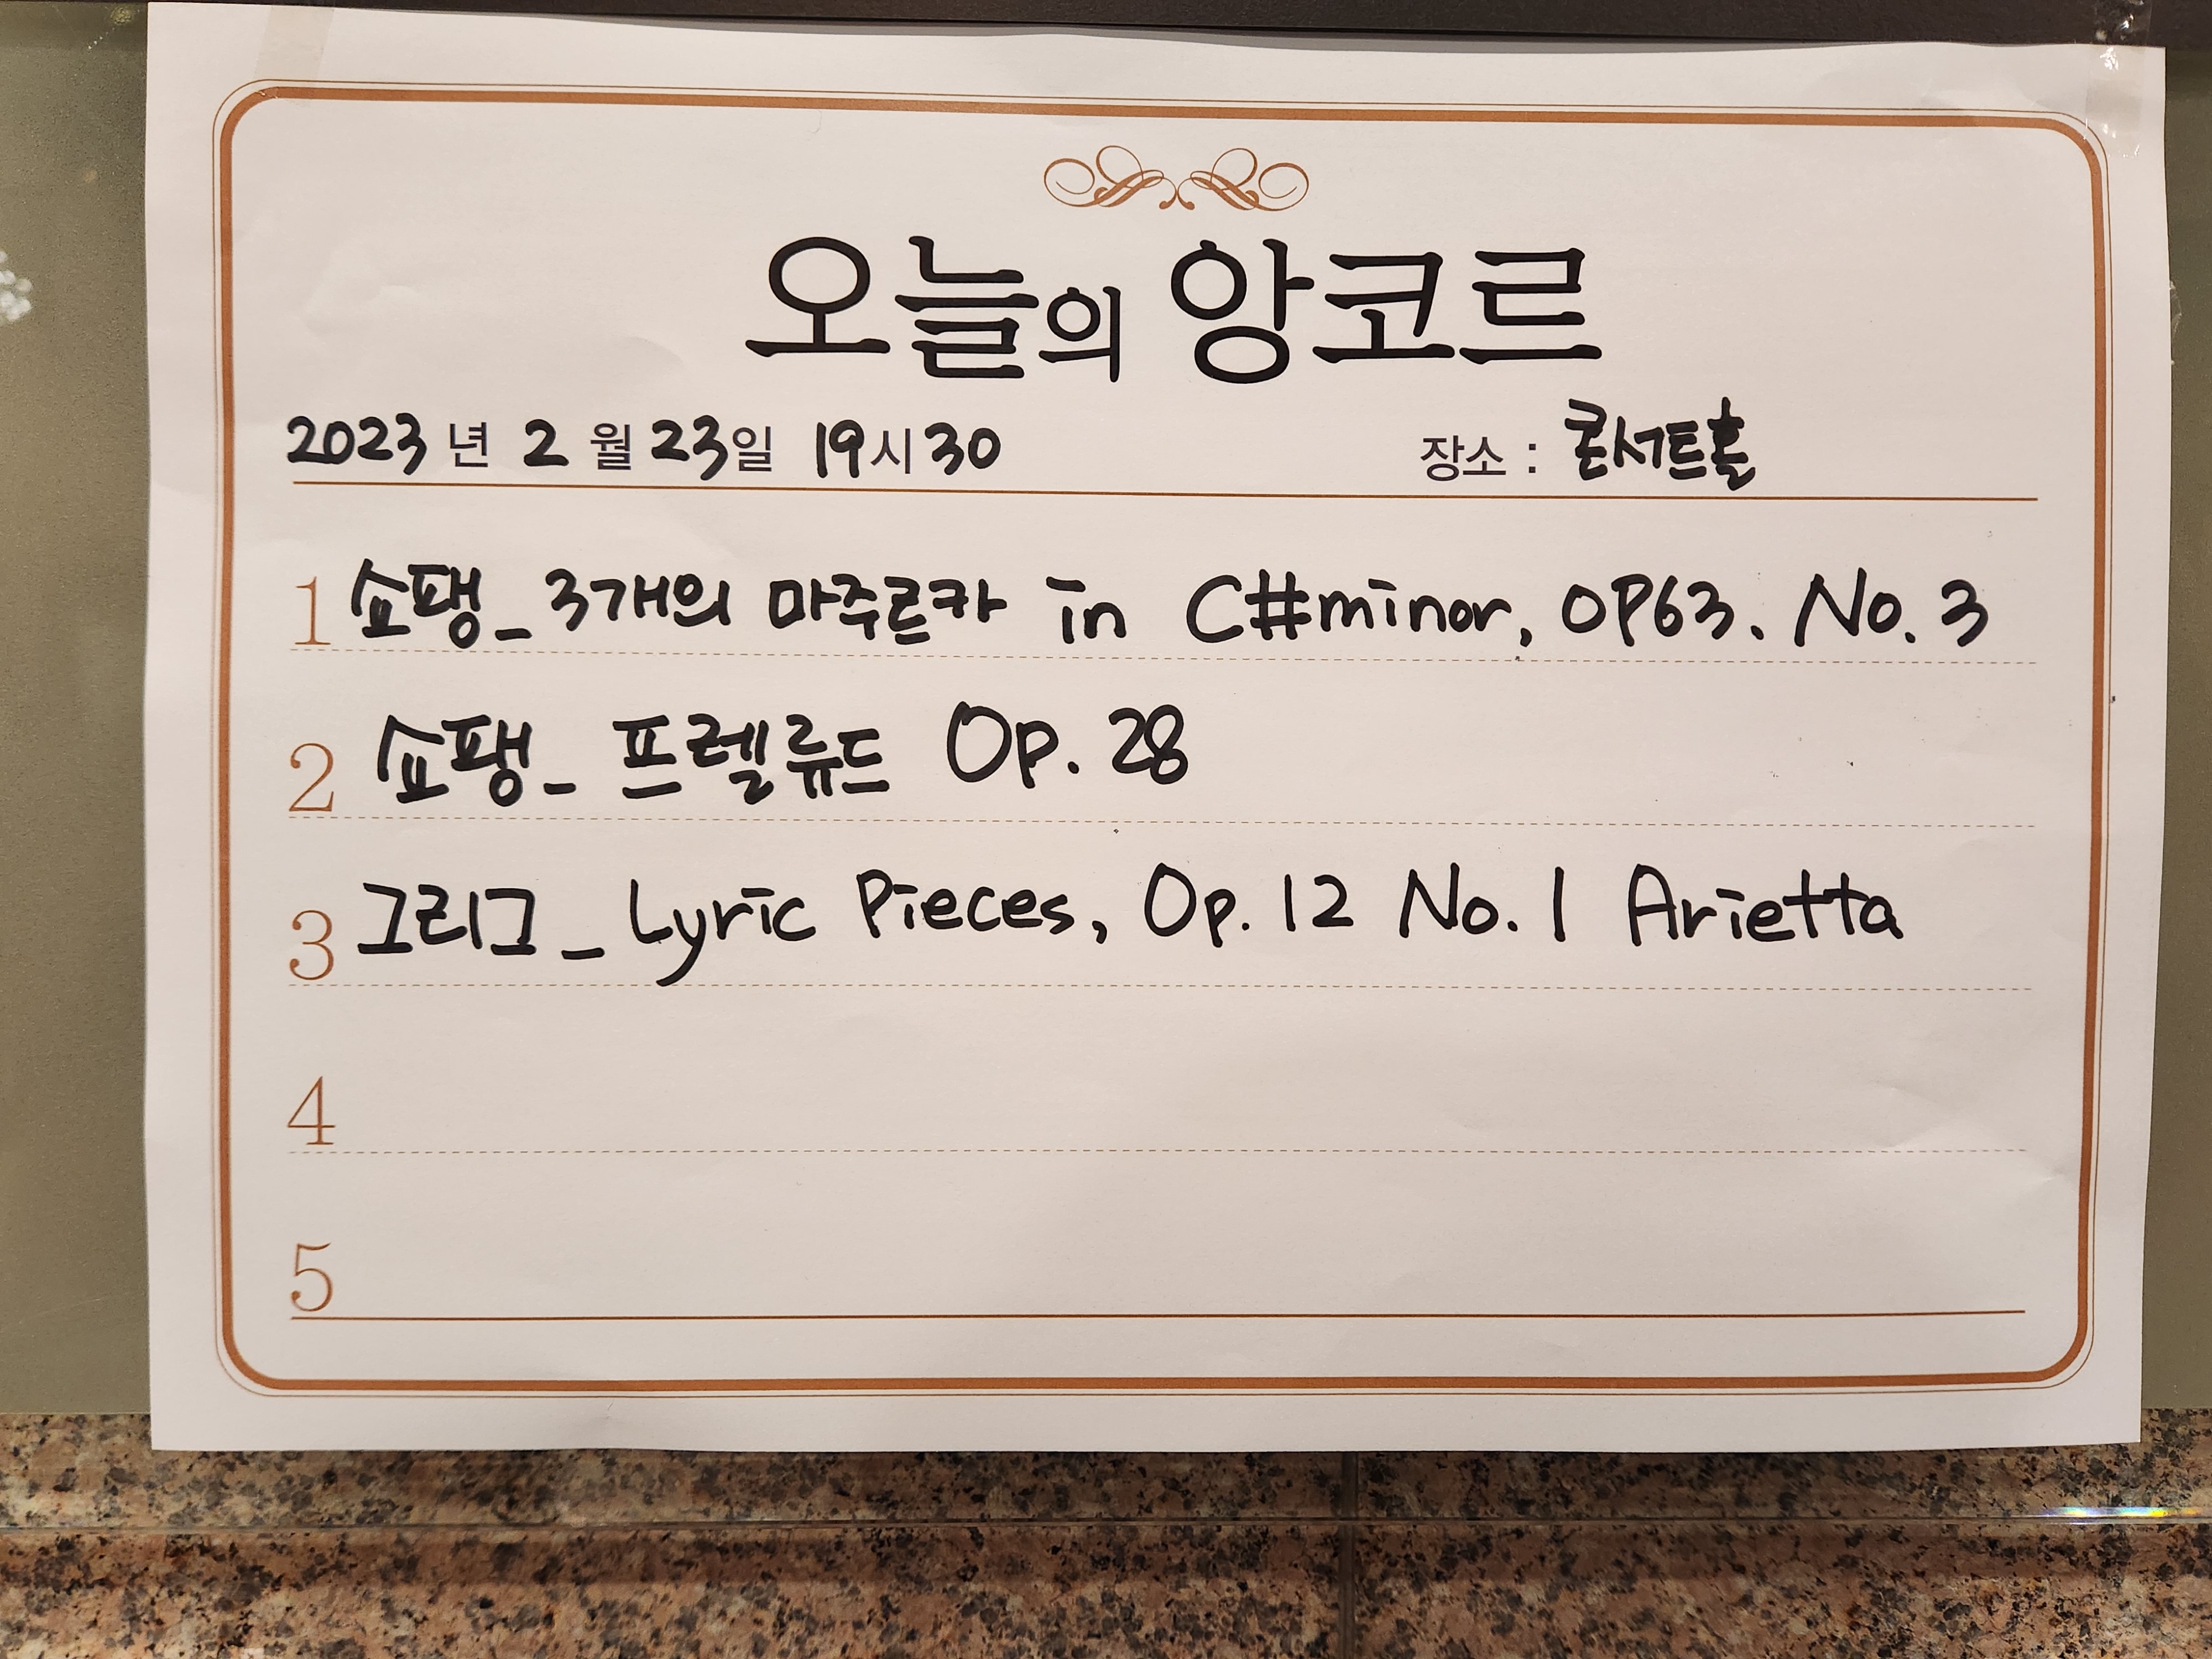 오늘의 앙코르
2023 년 2 월 23일 19시 30 장소 : 콘서트홀
1 쇼팽_3개의 마주르카 in C#minor, OP63. No. 3
2 쇼팽_ 프렐류드 Op. 28
3 그리그_Lyric Pieces, Op. 12 No. 1 Arietta
4
5